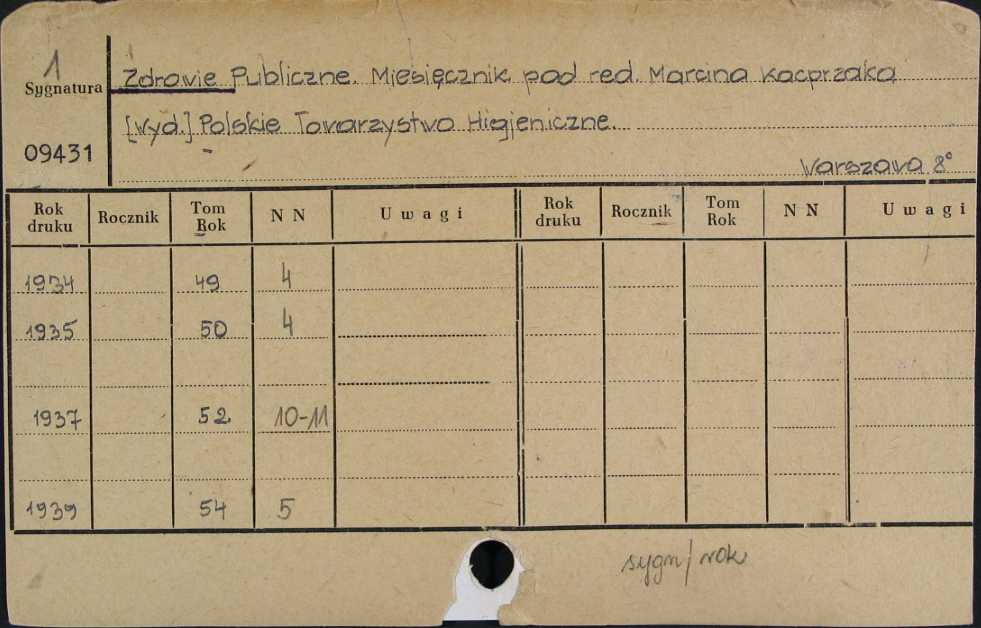 1
Sygnatura
09431
Zdrowie Publiczne. Miesięcznik pod red. Marcina Kacprzaka
[Wyd.] Polskie Towarzystwo Higjeniczne.
Warszawa 8°
Rok druku Rocznik Tom Rok N N Uwagi Rok druku Rocznik Tom Rok N N Uwagi
1934 49 4
1935 50 4
1937 52 10-11
1939 54 5
sygn/rok